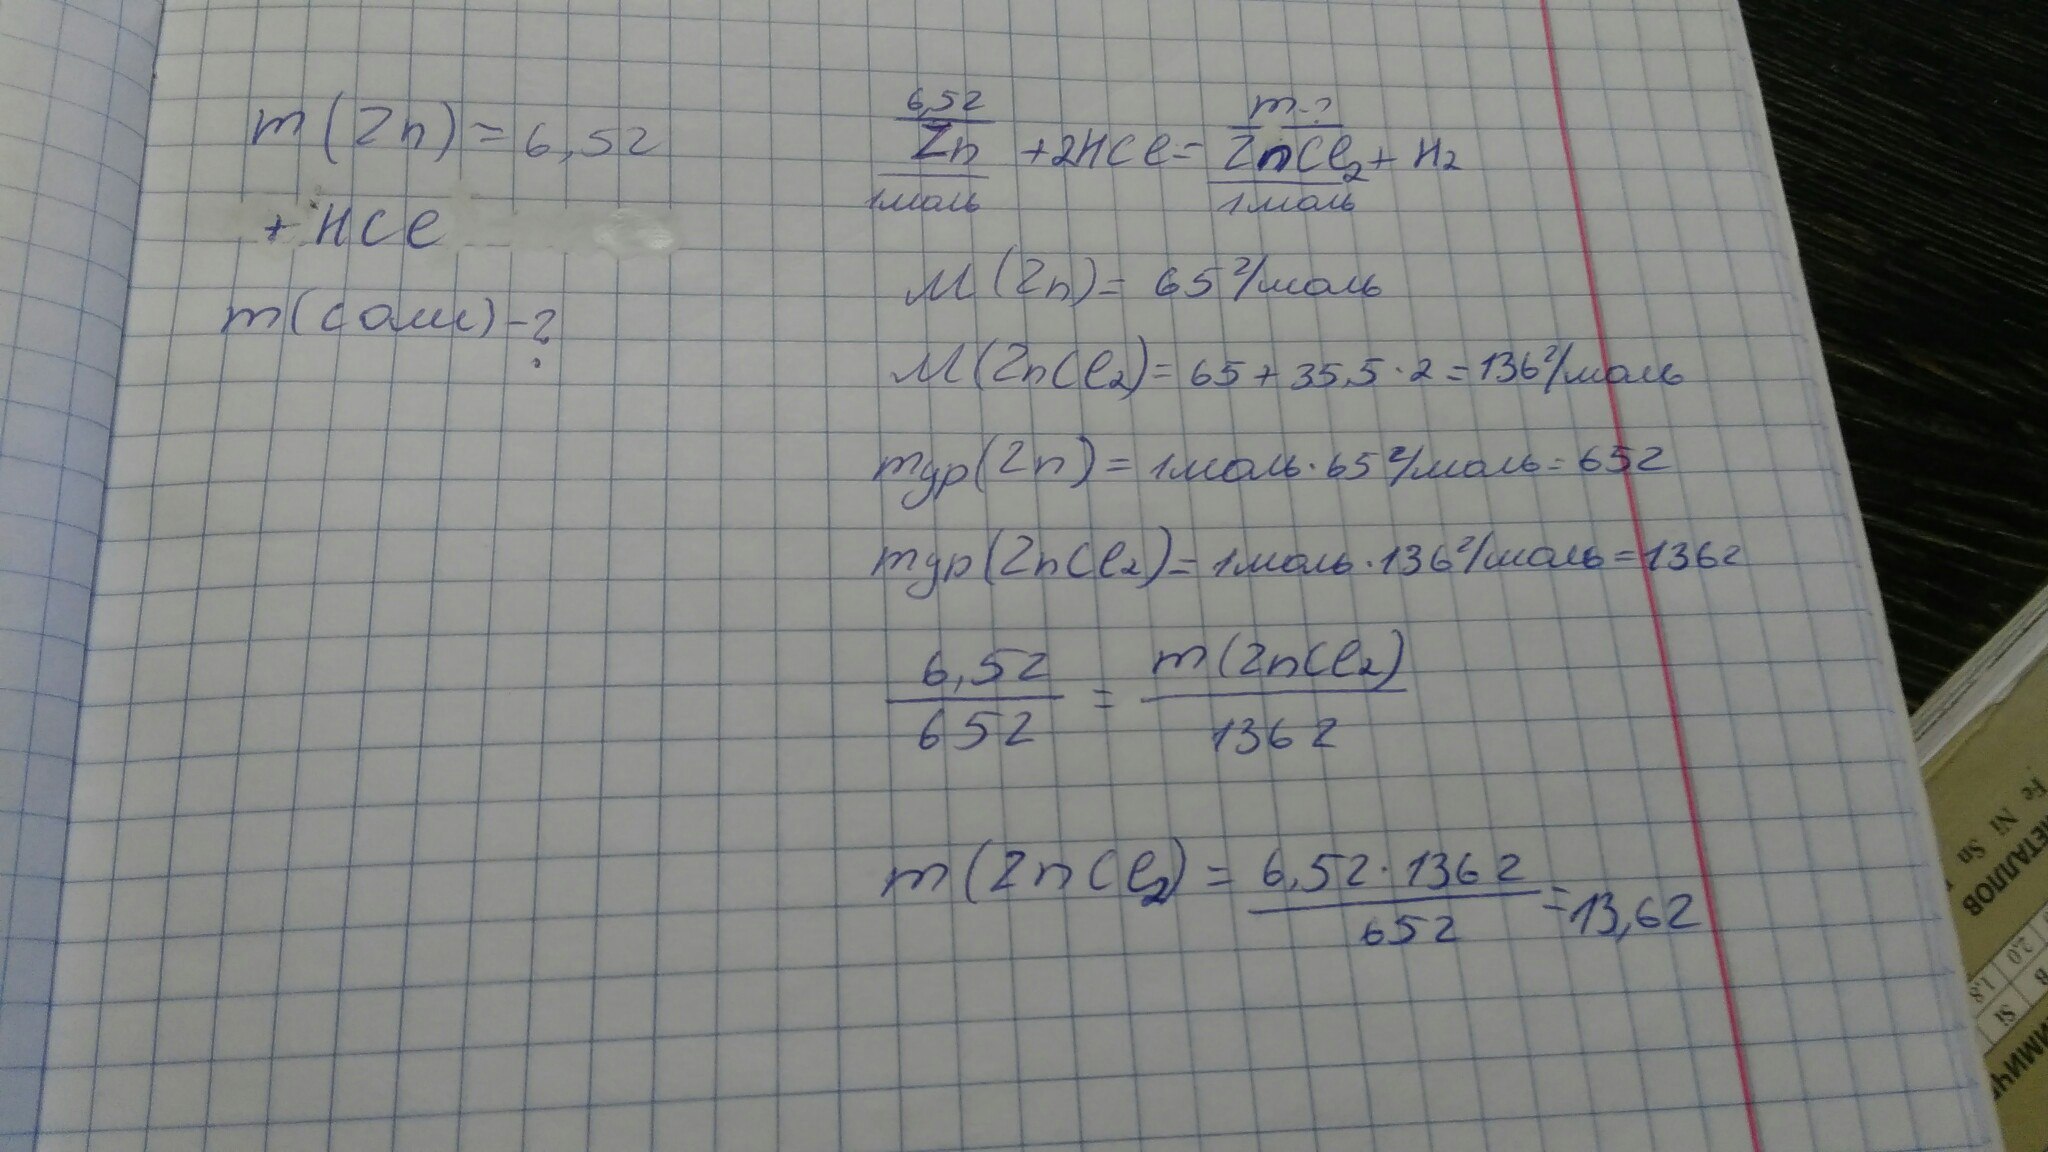 m(Zn)=6,5г
+ HCl
m(соли)-?
6,5г m-?
Zn +2HCl= ZnCl₂+ H₂
1моль 1моль
M(Zn)= 65 г/моль
M(ZnCl₂)= 65+35,5·2=136 г/моль
mур(Zn)= 1моль·65 г/моль=65г
mур(ZnCl₂)= 1моль·136 г/моль=136г
6,5г = m(ZnCl₂)
65г 136г
m(ZnCl₂)= 6,5г·136г =13,6г
65г
Fe Ni Sn
МЕТАЛЛОВ
2,0
1,8
B
Si